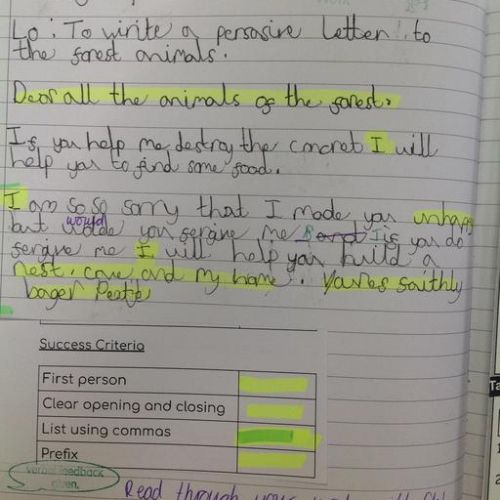 Lo: To wirte a persasive Letter to
the forest animals.
Dear all the animals of the forest.
If you help me destroy the concret I will
help you to find some food.
I am so so sorry that I made you unhappy
but would you forgive me I if you do
forgive me I will help you build a
nest, cave and my home. Yours saithly
bager
Success Criteria
First person
Clear opening and closing
List using commas
Prefix
Verbal feedback
given.
Read through your